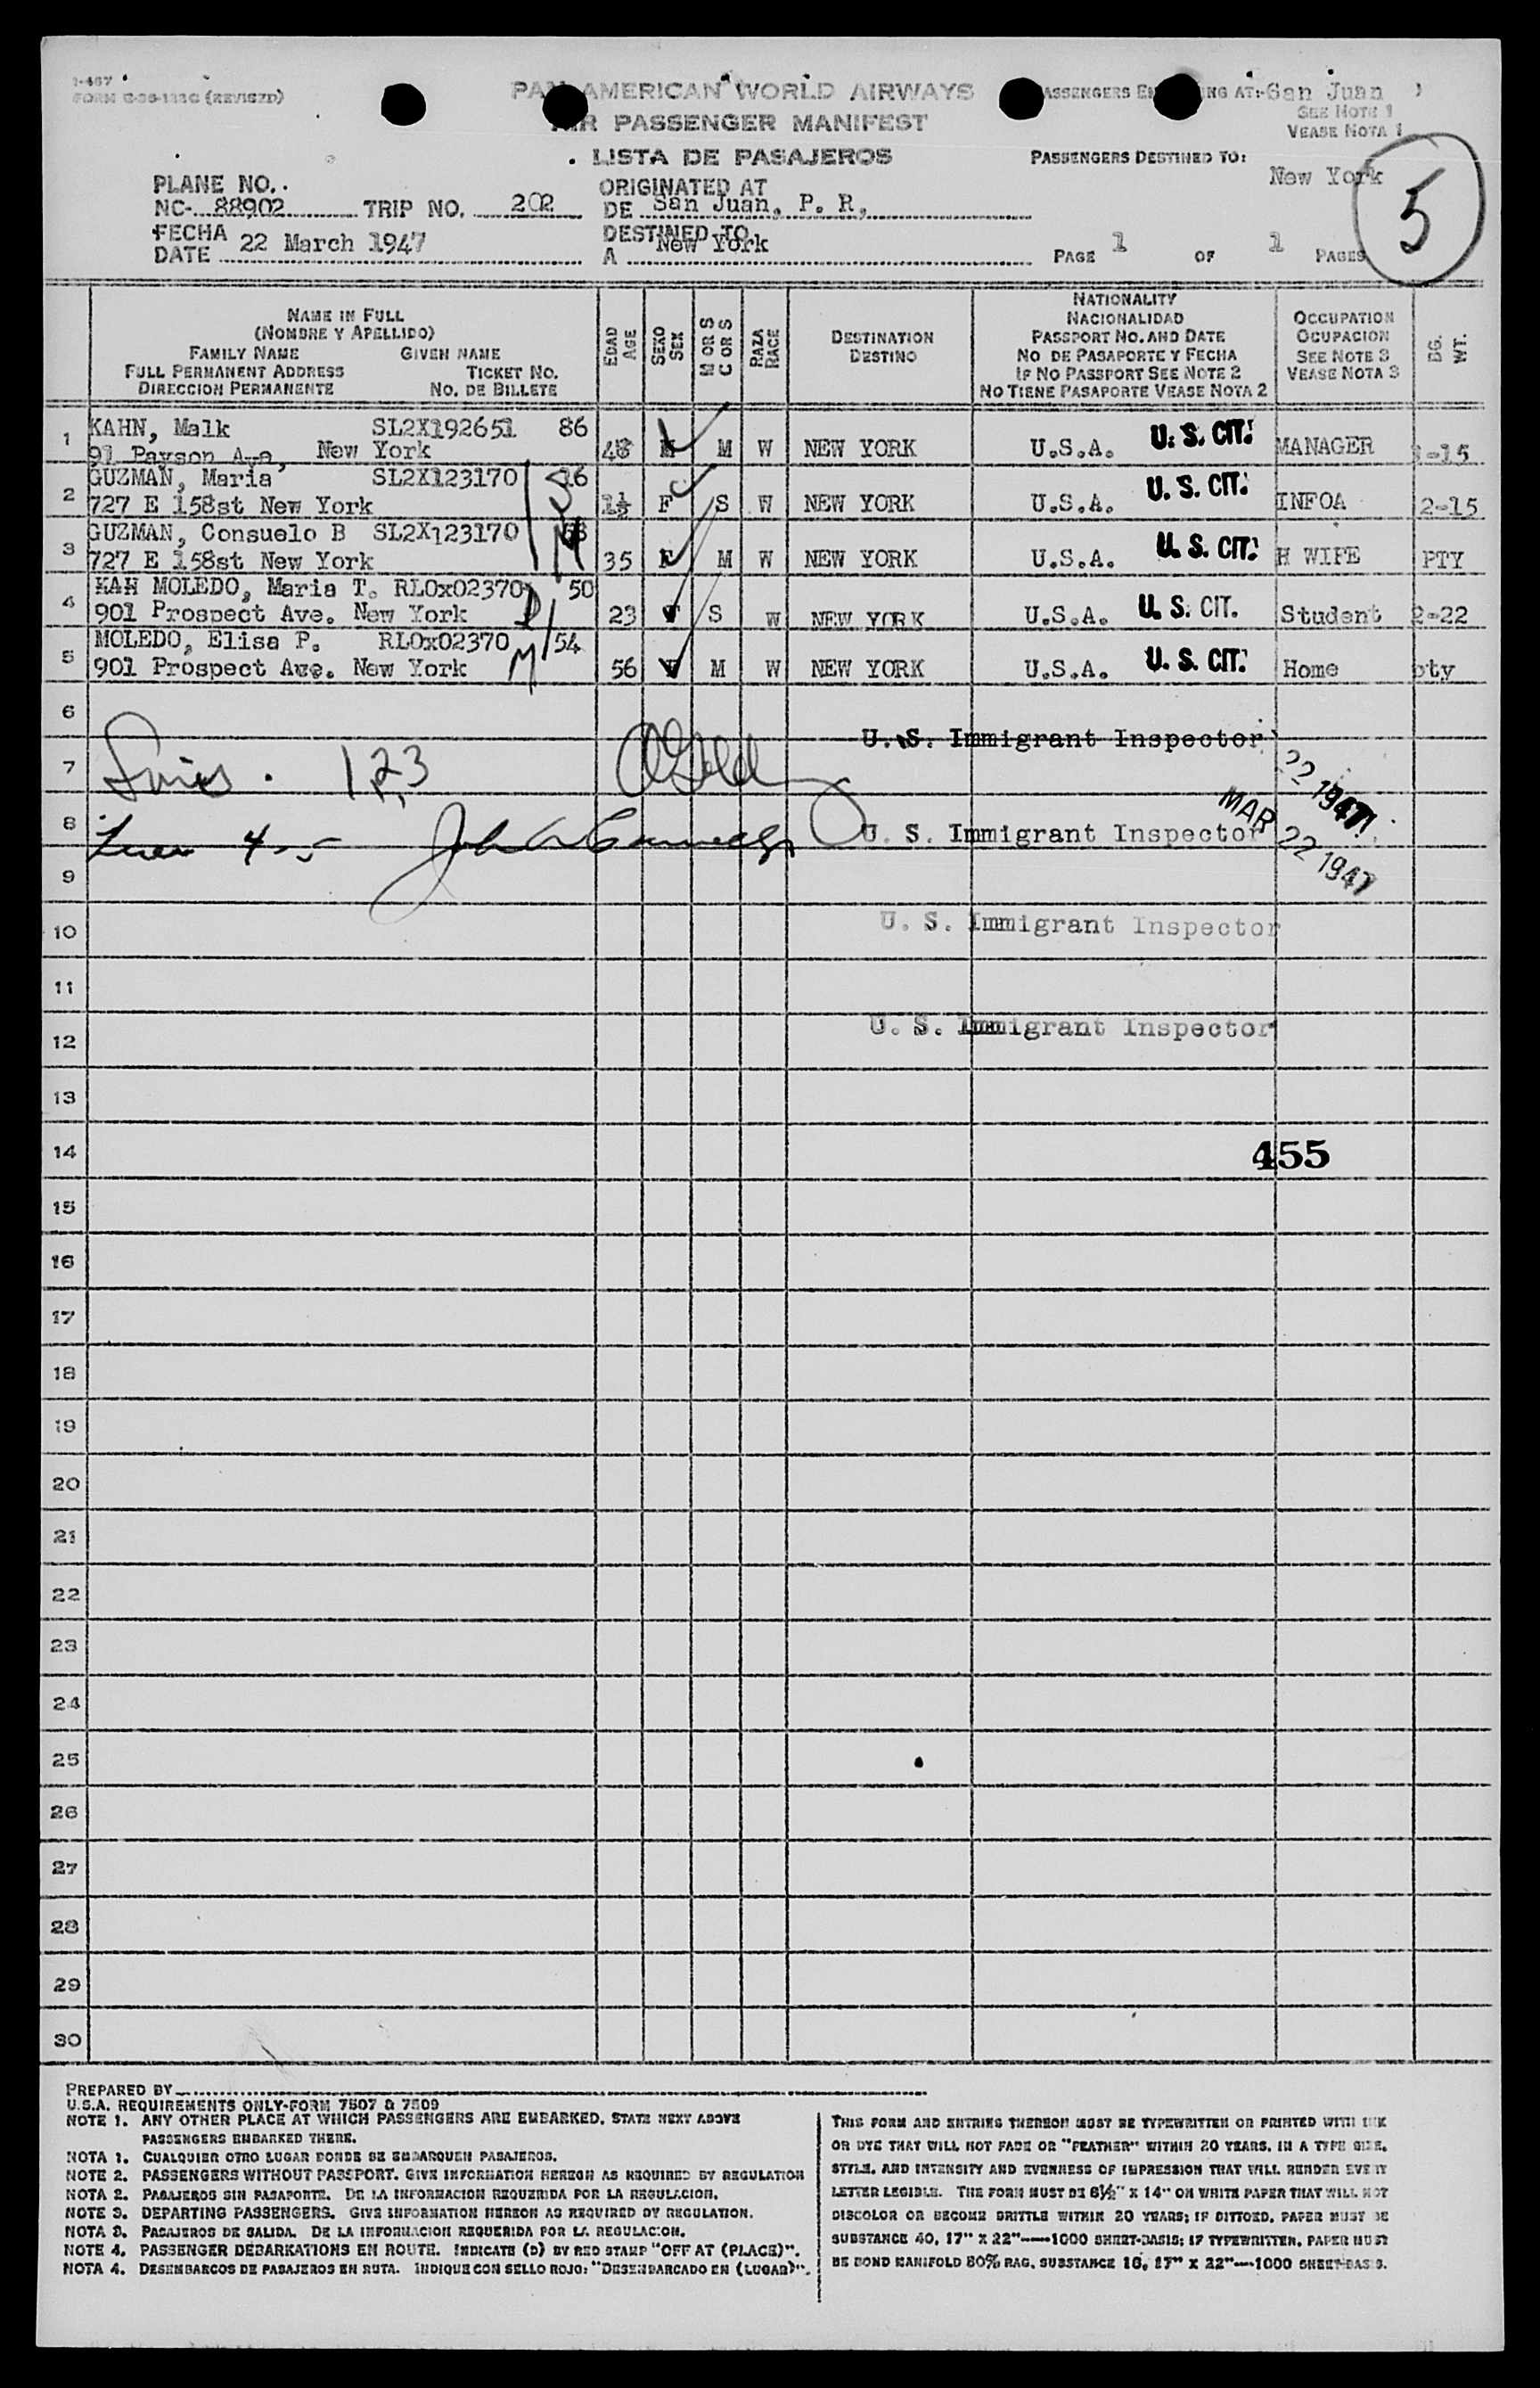 I-467
FORM C-36-133C (REVISED)
PAN AMERICAN WORLD AIRWAYS
AIR PASSENGER MANIFEST
LISTA DE PASAJEROS
PASSENGERS EMBARKING AT:-San Juan
SEE NOTE 1
VEASE NOTA 1
PASSENGERS DESTINED TO:
New York
5
PLANE NO.
NC- 88902 TRIP NO. 202
FECHA
DATE 22 March 1947
ORIGINATED AT
DE San Juan, P. R,
DESTINED TO
A New York
PAGE 1 OF 1 PAGES
NAME IN FULL
(NOMBRE Y APELLIDO)
FAMILY NAME GIVEN NAME
FULL PERMANENT ADDRESS TICKET NO.
DIRECCION PERMANENTE NO. DE BILLETE
EDAD
AGE
SEXO
SEX
M OR S
C OR S
RAZA
RACE
DESTINATION
DESTINO
NATIONALITY
NACIONALIDAD
PASSPORT NO. AND DATE
NO DE PASAPORTE Y FECHA
IF NO PASSPORT SEE NOTE 2
NO TIENE PASAPORTE VEASE NOTA 2
OCCUPATION
OCUPACION
SEE NOTE 3
VEASE NOTA 3
BG.
WT.
1 KAHN, Malk SL2X192651 86
91 Payson Ave, New York 48 M M W NEW YORK U.S.A. U. S. CIT. MANAGER -15
2 GUZMAN, Maria SL2X123170 S 16
727 E 158st New York 1½ F S W NEW YORK U.S.A. U. S. CIT. INFOA 2-15
3 GUZMAN, Consuelo B SL2X123170 M
727 E 158st New York 35 F M W NEW YORK U.S.A. U. S. CIT. H WIFE PTY
4 KAH MOLEDO, Maria T. RLOx02370 50
901 Prospect Ave. New York D 23 F S W NEW YORK U.S.A. U. S. CIT. Student 2-22
5 MOLEDO, Elisa P. RLOx02370 54
901 Prospect Ave. New York M 56 F M W NEW YORK U.S.A. U. S. CIT. Home pty
6
U. S. Immigrant Inspector
7 Lines. 1 2 3
22 1947
8 Lines 4-5 U. S. Immigrant Inspector
MAR 22 1947
9
10 U. S. Immigrant Inspector
11
12 U. S. Immigrant Inspector
13
14 455
15
16
17
18
19
20
21
22
23
24
25
26
27
28
29
30
PREPARED BY
U.S.A. REQUIREMENTS ONLY-FORM 7507 & 7509
NOTE 1. ANY OTHER PLACE AT WHICH PASSENGERS ARE EMBARKED, STATE NEXT ABOVE
PASSENGERS EMBARKED THERE.
NOTA 1. CUALQUIER OTRO LUGAR DONDE SE EMBARQUEN PASAJEROS.
NOTE 2. PASSENGERS WITHOUT PASSPORT. GIVE INFORMATION HEREON AS REQUIRED BY REGULATION
NOTA 2. PASAJEROS SIN PASAPORTE. DE LA INFORMACION REQUERIDA POR LA REGULACION.
NOTE 3. DEPARTING PASSENGERS. GIVE INFORMATION HEREON AS REQUIRED BY REGULATION.
NOTA 3. PASAJEROS DE SALIDA. DE LA INFORMACION REQUERIDA POR LA REGULACION.
NOTE 4. PASSENGER DEBARKATIONS EN ROUTE. INDICATE (D) BY RED STAMP "OFF AT (PLACE)".
NOTA 4. DESEMBARCOS DE PASAJEROS EN RUTA. INDIQUE CON SELLO ROJO: "DESEMBARCADO EN (LUGAR)".
THIS FORM AND ENTRIES THEREON MUST BE TYPEWRITTEN OR PRINTED WITH INK
OR DYE THAT WILL NOT FADE OR "FEATHER" WITHIN 20 YEARS, IN A TYPE SIZE,
STYLE, AND INTENSITY AND EVENNESS OF IMPRESSION THAT WILL RENDER EVERY
LETTER LEGIBLE. THE FORM MUST BE 8½" X 14" ON WHITE PAPER THAT WILL NOT
DISCOLOR OR BECOME BRITTLE WITHIN 20 YEARS; IF DITTOED, PAPER MUST BE
SUBSTANCE 40, 17" X 22"-1000 SHEET-BASIS; IF TYPEWRITTEN, PAPER MUST
BE BOND MANIFOLD 50% RAG, SUBSTANCE 16, 17" X 22"-1000 SHEET-BASIS.